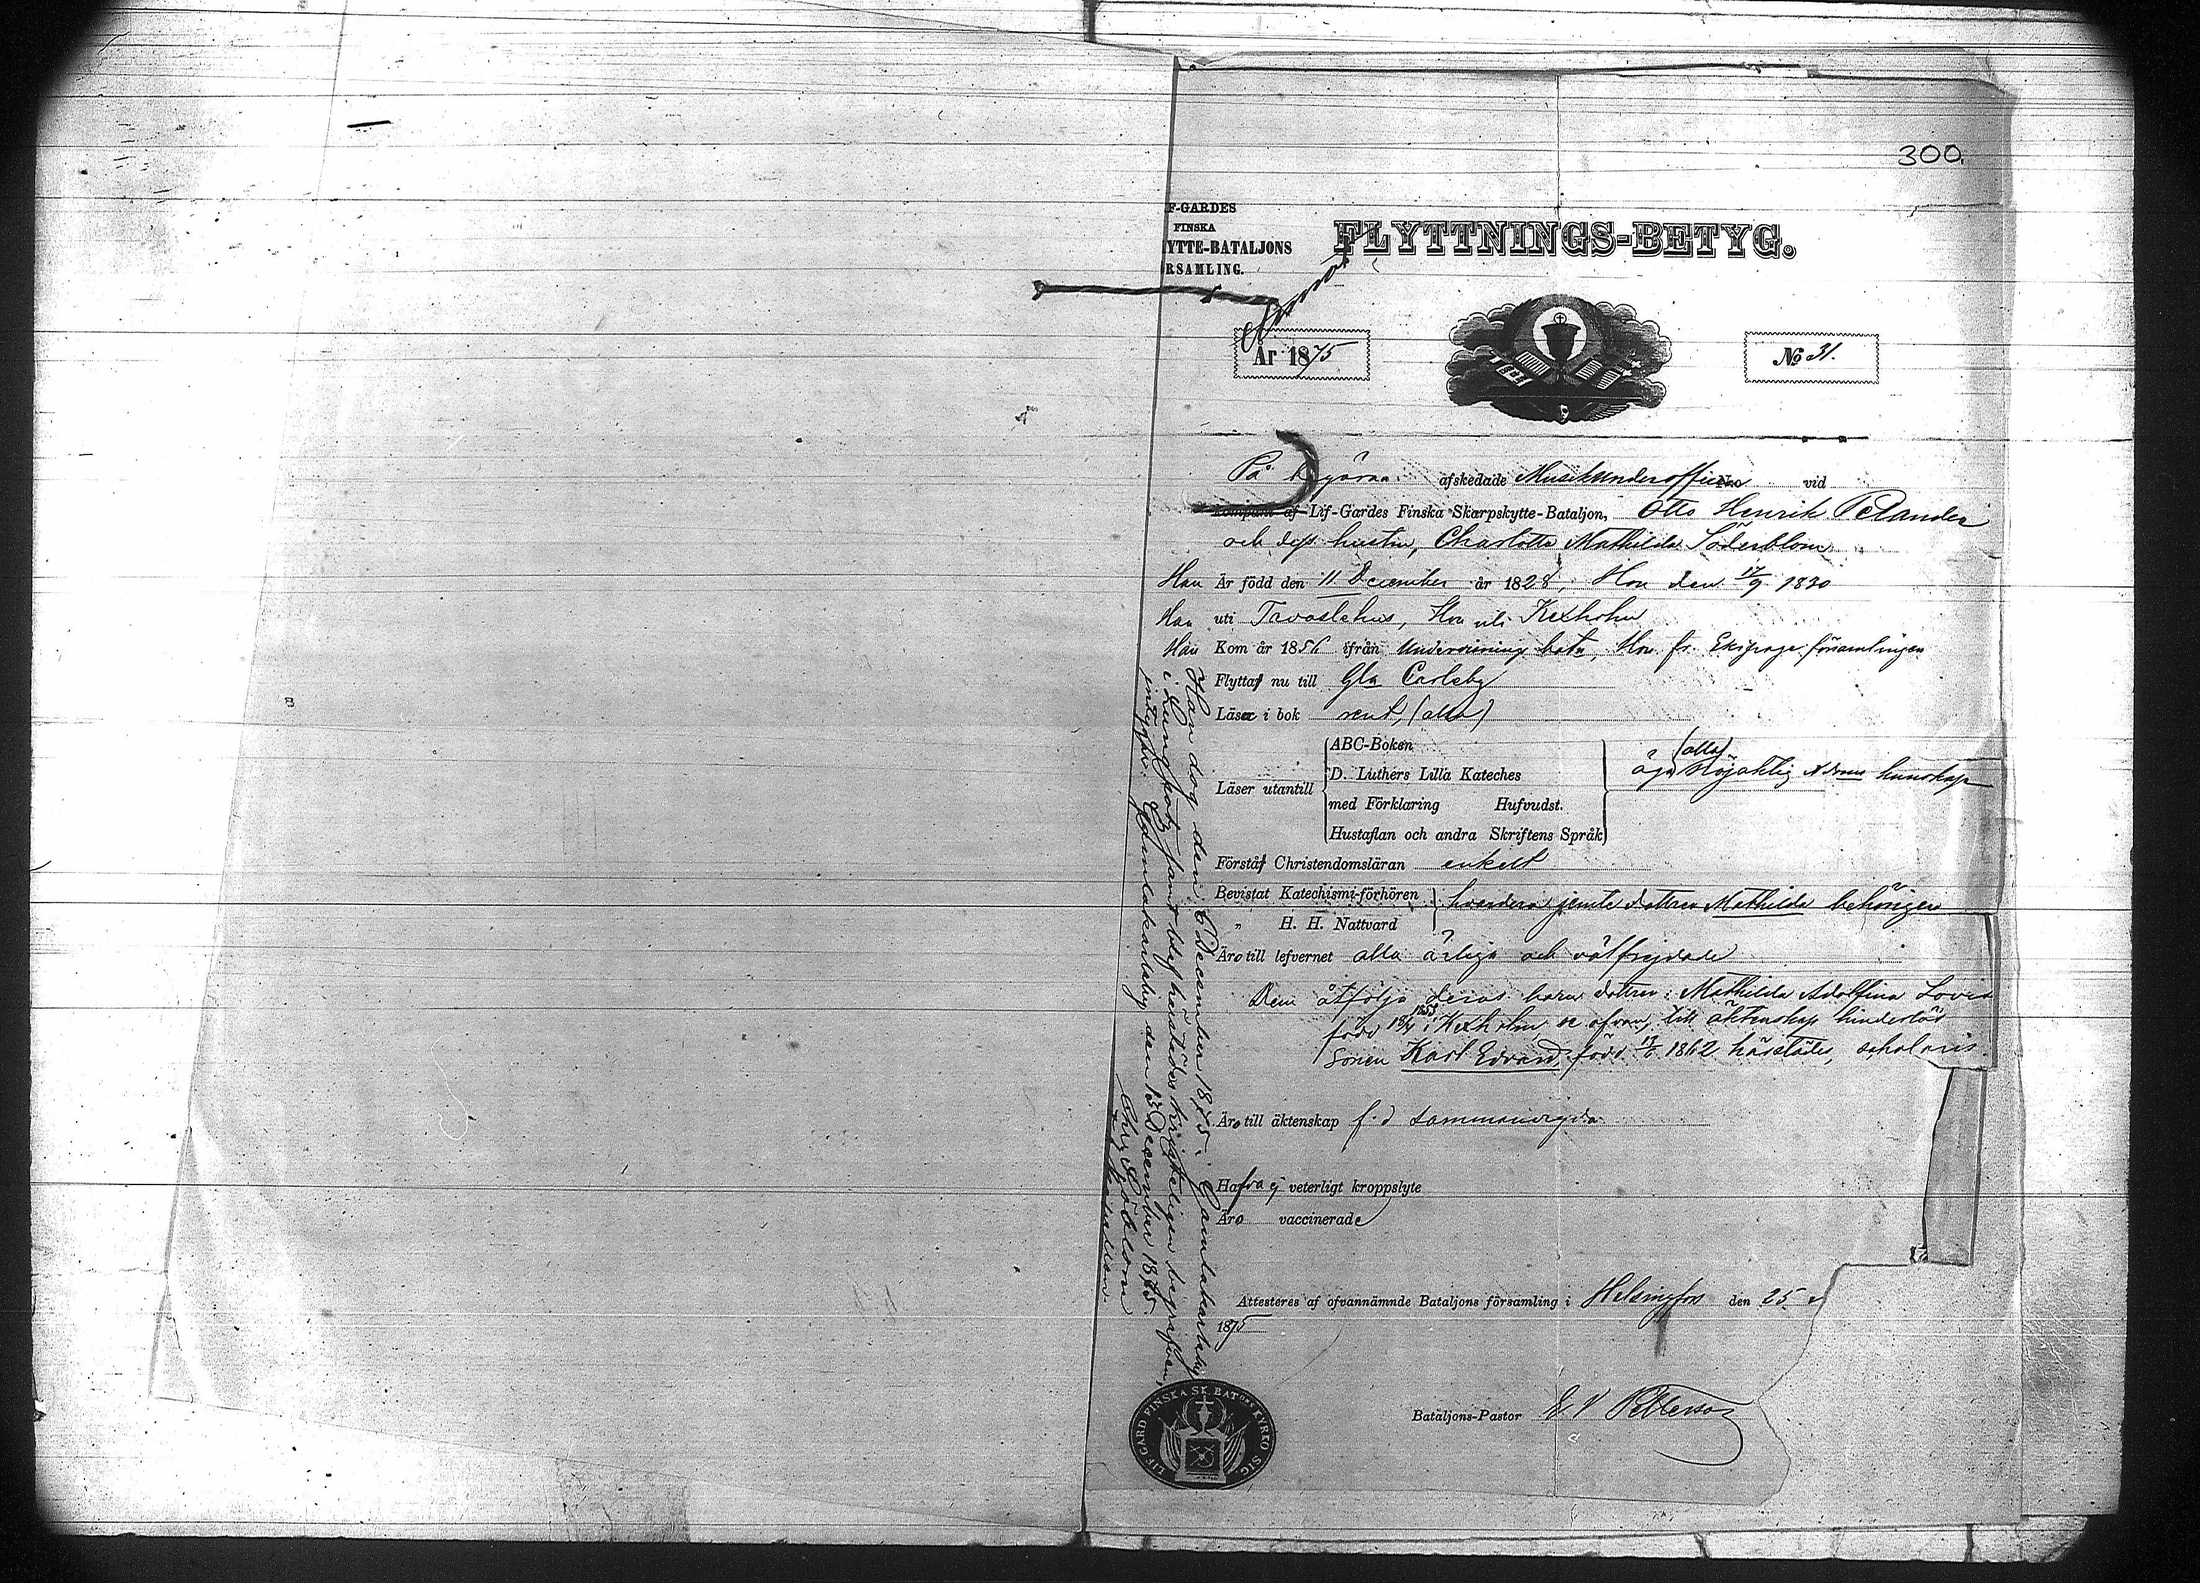 300.
F-GARDES
FINSKA
YTTE-BATALJONS
RSAMLING.
FLYTTNINGS-BETYG.
År 1875
No 31.
På begäran afskedade Musikunderofficen vid
kompani af Lif-Gardes Finska Skarpskytte-Bataljon, Otto Henrik Pelander
och dess hustru, Charlotta Mathilda Söderblom
Han Är född den 11 December år 1828, Hon den 17/9 1830
Han uti Tavastehus, Hon uti Kexholm
Han Kom år 1856 ifrån Undervisning batn, Hon fr. Ekipage församlingen
Flytta nu till Gla Carleby
Läser i bok rent, (alla)
Läser utantill
ABC-Boken
D. Luthers Lilla Kateches
med Förklaring Hufvudst.
Hustaflan och andra Skriftens Språk
(alla)
äga nöjaktig kunskap
Förstå Christendomsläran enkelt
Bevistat Katechismi-förhören
„ H. H. Nattvard
hvardera jemte dottren Mathilda behörigen
Äro till lefvernet alla ärliga och välfrejdade
Dem åtfölja deras barn dottren: Mathilda Adolfina Lovis
född 1853 i Kexholm se ofvan, till äktenskap hinderlös
Sonen Karl Edvard, född 17/6 1862 härstädes, scholaris.
Äro till äktenskap f. d sammanvigda
Hafva ej veterligt kroppslyte
Äro vaccinerade
Attesteres af ofvannämnde Bataljons församling i Helsingfors den 25
1875
Bataljons-Pastor E. V Petterson
LIF. GARD. FINSKA SK. BATONS KYRKO SIG.
Han dog den 6 December 1875 i Gamlakarleby
i Lungsot, samt blef härstädes kristeligen begrafven,
intygar. Gamlakarleby den 13 December 1875.